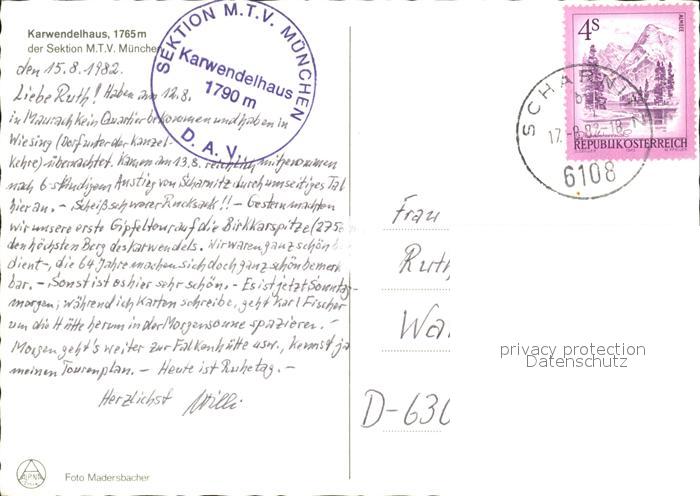 Karwendelhaus, 1765 m
der Sektion M.T.V. München
SEKTION M.T.V. MÜNCHEN
Karwendelhaus
1790 m
D.A.V.
4S
ALMSEE
REPUBLIK ÖSTERREICH
SCHARNITZ
17.-8.82-18
6108
den 15.8.1982.
Liebe Ruth! Haben am 12.8.
in Maurach kein Quartier bekommen und haben in
Wiesing (Dorf unter der Kanzel-
kehre) übernachtet. Kamen am 13.8. mitgenommen
nach 6-stündigem Anstieg von Scharnitz durch umseitiges Tal
hier an. - Scheißschwerer Rucksack!! - Gestern machten
wir unsere erste Gipfeltour auf die Birkkarspitze (275
den höchsten Berg des Karwendels. Wir waren ganz schön b
dient-, die 64 Jahre machen sich doch ganz schön bemerk
bar. - Sonst ist es hier sehr schön. - Es ist jetzt Sonntag-
morgen; während ich Karten schreibe, geht Karl Fischer
um die Hütte herum in der Morgensonne spazieren. -
Morgen geht's weiter zur Falkenhütte usw., kennst ja
meinen Tourenplan. - Heute ist Ruhetag. -
Herzlichst Willi
Frau
Ruth
Wa
D-630
privacy protection
Datenschutz
Foto Madersbacher